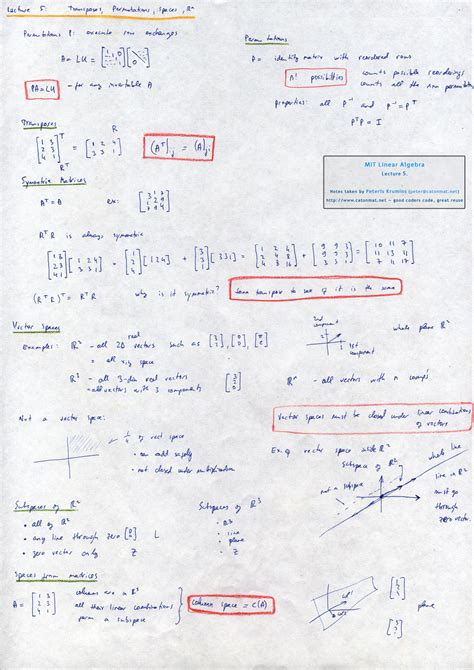 Lecture 5: Transposes, Permutations, Spaces, R^n
Permutations P: execute row exchanges
A = LU = [1 0 0; 1 0; 1] [ ]
PA = LU - for any invertable A
Permutations
P = identity matrix with reordered rows
n! possibilities
counts possible reorderings
counts all the nxn permutations
properties: all P^-1 and P^-1 = P^T
P^T P = I
Transposes
[1 3; 2 3; 4 1]^T = [1 2 4; 3 3 1]
R
R^T
(A^T)_ij = (A)_ji
MIT Linear Algebra
Lecture 5.
Notes taken by Peteris Krumins (peter@catonmat.net)
http://www.catonmat.net - good coders code, great reuse
Symmetric Matrices
A^T = A
ex: [3 1 7; 1 2 9; 7 9 4]
R^T R is always symmetric
[1 3; 2 3; 4 1] [1 2 4; 3 3 1] = [1; 2; 4] [1 2 4] + [3; 3; 1] [3 3 1] = [1 2 4; 2 4 8; 4 8 16] + [9 9 3; 9 9 3; 3 3 1] = [10 11 7; 11 13 11; 7 11 17]
(R^T R)^T = R^T R
why is it symmetric?
take transpose to see if it is the same
Vector Spaces
Examples: R^2 - all 2D real vectors such as [3; 2], [0; 0], [π; e]
= all x,y space
2nd component
1st component
whole plane R^2
R^3 - all 3-dim real vectors
- all vectors with 3 components
[3; 2; 0]
R^n - all vectors with n comp's
Not a vector space:
1/4 of vect space
• can add supply
• not closed under multiplication
Vector spaces must be closed under linear combinations
of vectors
Ex. of vector space inside R^2
subspace of R^2
not a subspace
whole line
line in R^2
must go
through
zero vector.
Subspaces of R^2
• all of R^2
• any line through zero [0; 0] L
• zero vector only Z
Subspaces of R^3
• R^3
• line
• plane
Z
Spaces from matrices
A = [1 3; 2 3; 4 1]
columns are in R^3
all their linear combinations
form a subspace
column space = C(A)
col 1
col 2
[1; 2; 4]
plane
[3; 3; 1]